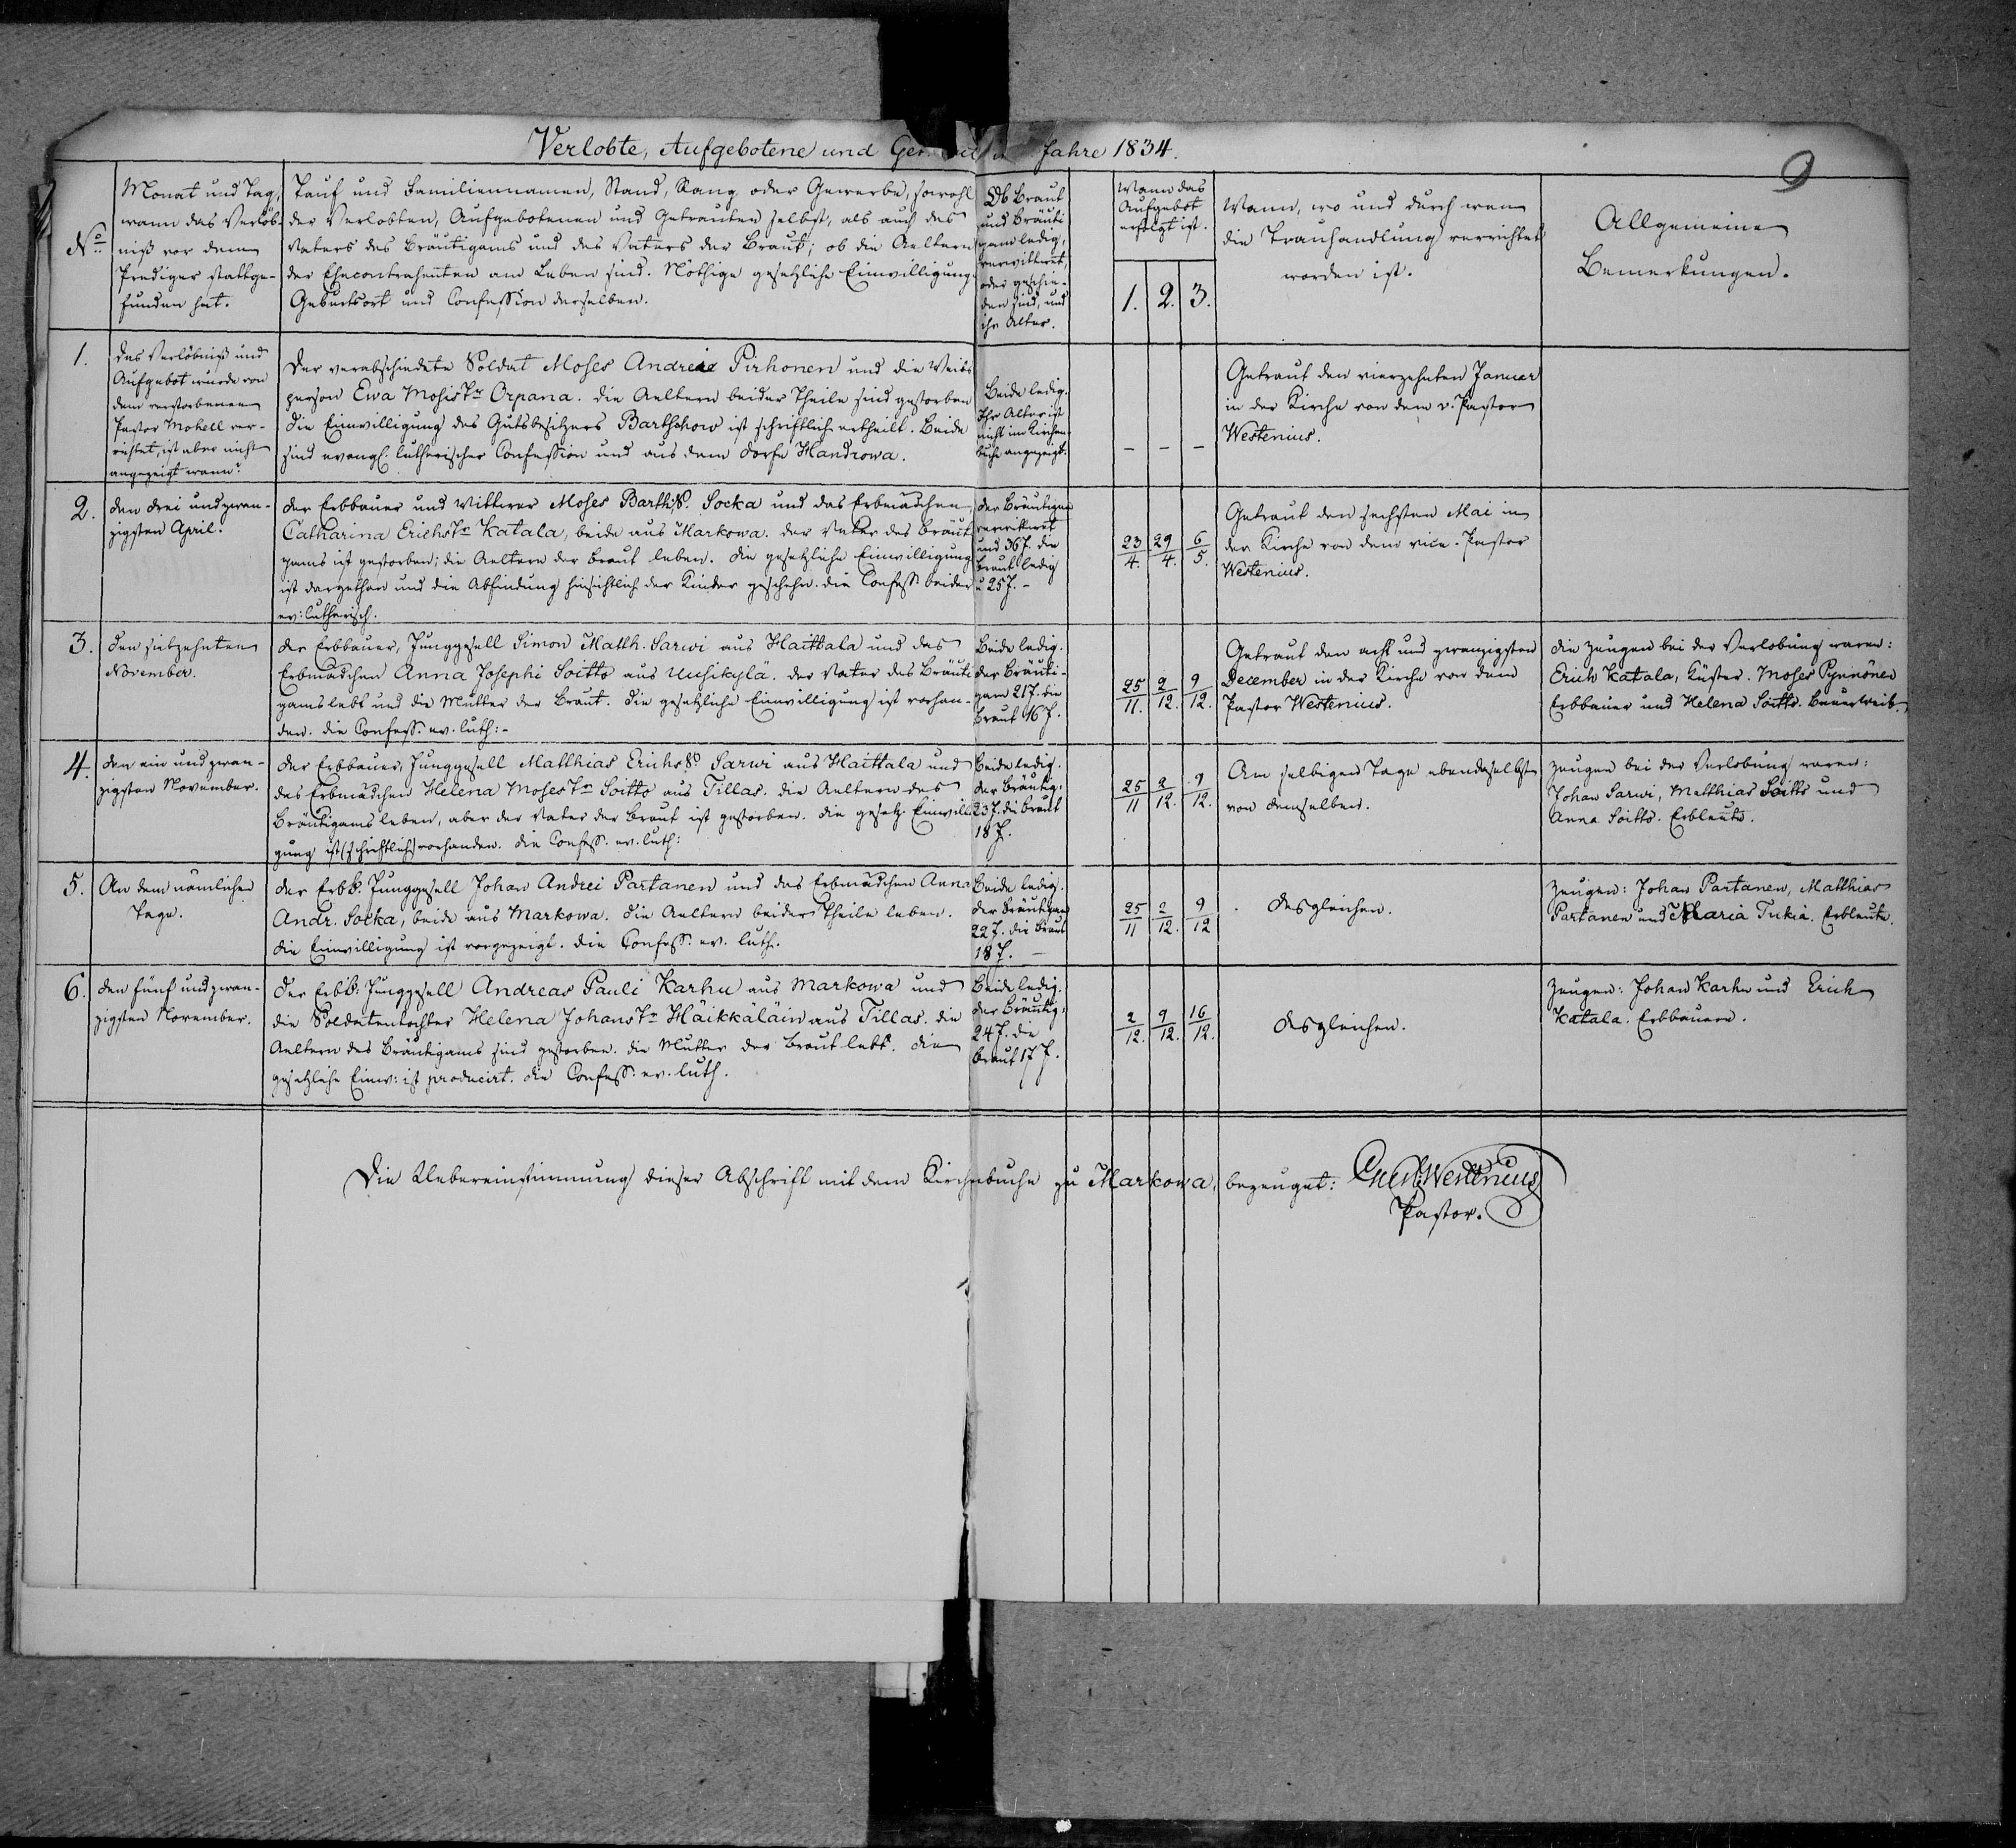 Verlobte, Aufgebotene und Jahre 1834.
9
No
Monat und Tag,
wann das Verlöb-
niß vor dem
Prediger stattge-
funden hat.
Tauf und Familiennamen, Stand, Rang, oder Gewerbe, sowohl
der Verlobten, Aufgebotenen und Getrauten selbst, als auch des
Vaters des Bräutigams und des Vaters der Braut; ob die Aeltern
der Ehecontrahenten am Leben sind. Nöthige gesetzliche Einwilligung.
Geburtsort und Confession derselben.
Ob Braut
und Bräuti
gam ledig,
verwittwet,
oder geschie-
den sind, und
ihr Alter.
Wann das
Aufgebot
erfolgt ist.
1. 2. 3.
Wann, wo und durch wem
die Trauhandlung verrichtet
worden ist.
Allgemeine
Bemerkungen.
1.
Das Verlöbniß und
Aufgebot wurde von
dem verstorbenen
Pastor Mohell ver-
richtet, ist aber nicht
angezeigt wann?
Der verabschiedete Soldat Moses Pirhonen und die Weibs
person Ewa Orpana. Die Aeltern beider Theile sind gestorben
Die Einwilligung des Gutsbesitzers Barthschow ist schriftlich ertheilt. Beide
sind evangl. lutherischer Confession und aus dem Dorfe Handrowa.
Beide ledig.
Ihr Alter ist
nicht im Kirchen-
buche angezeigt.
- - -
Getraut den vierzehnten Januar
in der Kirche von dem v. Pastor
Westenius.
2.
Den drei und zwan-
zigsten April.
Der Erbbauer und Wittwer Moses Socka und das Erbmädchen
Catharina Erichstr Katala, beide aus Markowa. Der Vater des Bräuti
gams ist gestorben; die Aeltern der Braut leben. Die gesetzliche Einwilligung
ist dargethan und die Abfindung hinsichtlich der Kinder geschehn. Die Confess. beider
ev: lutherisch.
Der Bräutigam
verwittwet
und 36 J. die
Braut ledig
u 25 J. -
23/4. 29/4. 6/5.
Getraut den sechsten Mai in
der Kirche von dem vice-Pastor
Westenius.
3.
Den siebzehnten
November.
Der Erbbauer, Junggesell Simon Matth. Sarwi aus Haittala und das
Erbmädchen Anna Josephi Soitto aus Uusikylä. Der Vater des Bräuti
gams lebt und die Mutter der Braut. Die gesetzliche Einwilligung ist vorhan-
den. Die Confess. ev. luth:-
Beide ledig.
Der Bräuti-
gam 21 J. die
Braut 16 J.
25/11. 2/12. 9/12.
Getraut den acht und zwanzigsten
December in der Kirche von dem
Pastor Westenius.
Die Zeugen bei der Verlobung waren:
Erich Katala, Küster. Moses Pynnönen
Erbbauer und Helena Soitto. Bauerweib.
4.
Den ein und zwan-
zigsten November.
Der Erbbauer, Junggesell Matthias Sarwi aus Haittala und
das Erbmädchen Helena Mosestr Soitto aus Tillas. Die Aeltern des
Bräutigams leben, aber der Vater der Braut ist gestorben. Die gesetz. Einwilli
gung ist (schriftlich) vorhanden. Die Confess. ev. luth:
Beide ledig.
Der Bräutig.
23 J. die Braut
18 J.
25/11 2/12. 9/12.
Am selbigen Tage ebendaselbst
von demselben.
Zeugen bei der Verlobung waren:
Johan Sarwi, Matthias Soitto und
Anna Soitto. Erbleute.
5.
An dem nämlichen
Tage.
Der Erbb. Junggesell Johan Andrei Partanen und das Erbmädchen Anna
Andr. Socka, beide aus Markowa. Die Aeltern beider Theile leben.
Die Einwilligung ist vorgezeigt. Die Confess. ev. luth.
Beide ledig.
Der Bräutigam
22 J. die Braut
18 J. -
25/11 2/12. 9/12
Desgleichen.
Zeugen: Johan Partanen, Matthias
Partanen und Maria Tukia. Erbleute.
6.
Den fünf und zwan-
zigsten November.
Der Erbb: Junggesell Andreas Pauli Karhu aus Markowa und
die Soldatentochter Helena Johanstr Häikkäläin aus Tillas. Die
Aeltern des Bräutigams sind gestorben. Die Mutter der Braut lebt. Die
gesetzliche Einw: ist producirt. Die Confess. ev. luth.
Beide ledig.
Der Bräutig.
24 J. die
Braut 17 J.
2/12. 9/12. 16/12.
Desgleichen.
Zeugen: Johan Karhu und Erich
Katala. Erbbauern.
Die Uebereinstimmung dieser Abschrift mit dem Kirchenbuche zu Markowa, bezeuget: Westenius
Pastor.